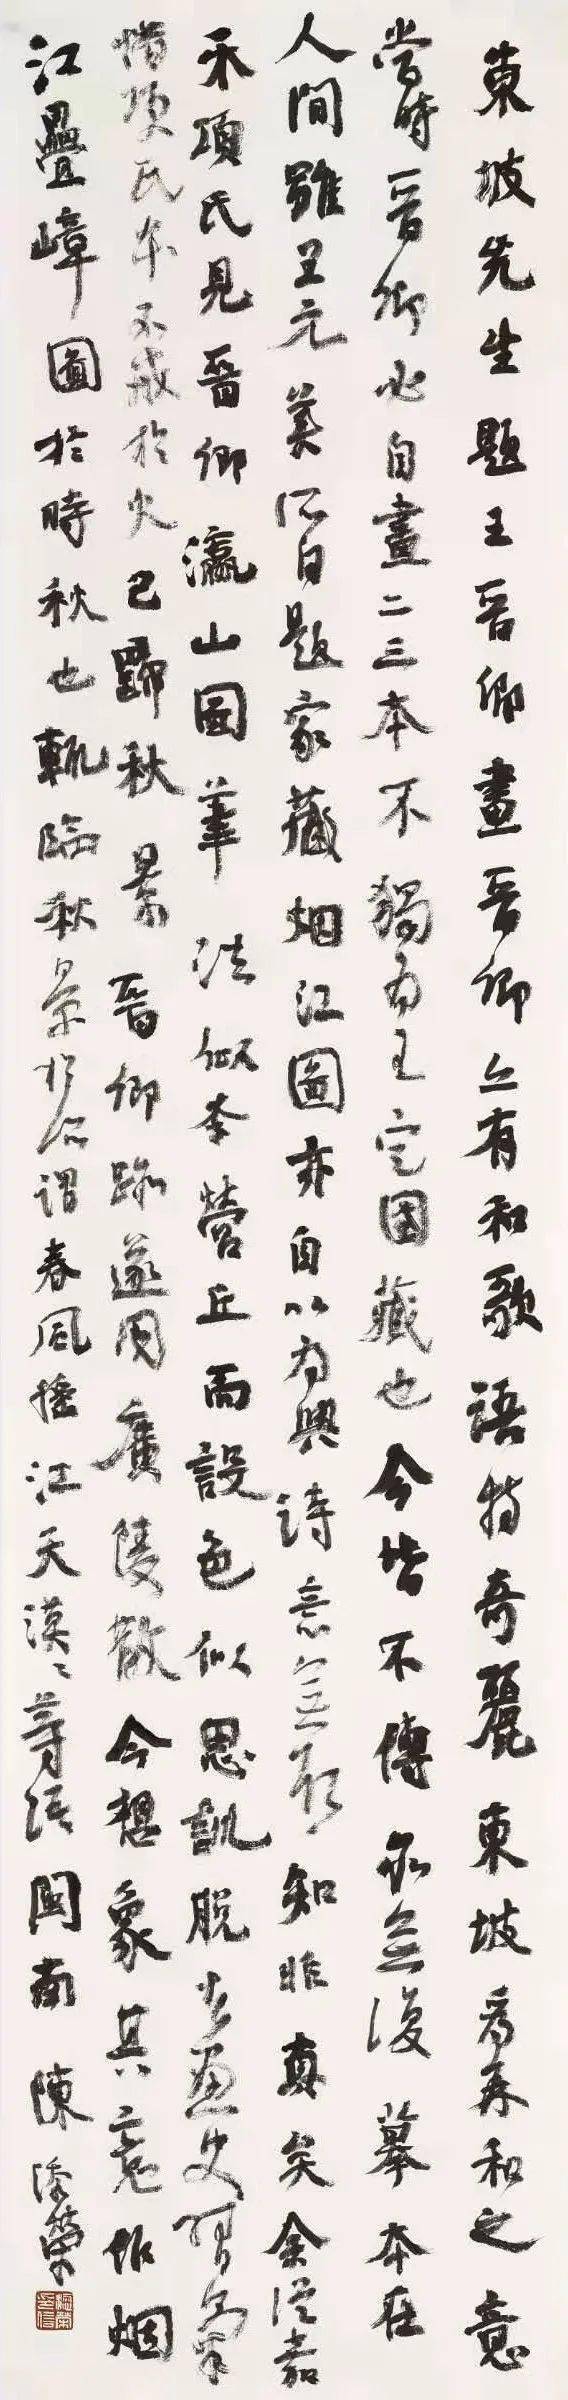 東坡先生題王晉卿畫晉卿亦有和歌語特奇麗東坡爲再和之意
當時晉卿必自畫二三本不獨為王定国藏也今皆不傳亦無復摹本在
人間雖王元美所自題家藏烟江圖亦自以為與詩意無取知非真矣余從嘉
禾項氏見晉卿瀛山圖筆法似李營丘而設色似思訓脱去画史習氣
惜項氏本不戒於火已歸秋景晉卿跡遂同廣陵散今想象其意作烟
江疊嶂圖於時秋也輒臨秋景於所謂春風摇江天漠漠等語闽南陳